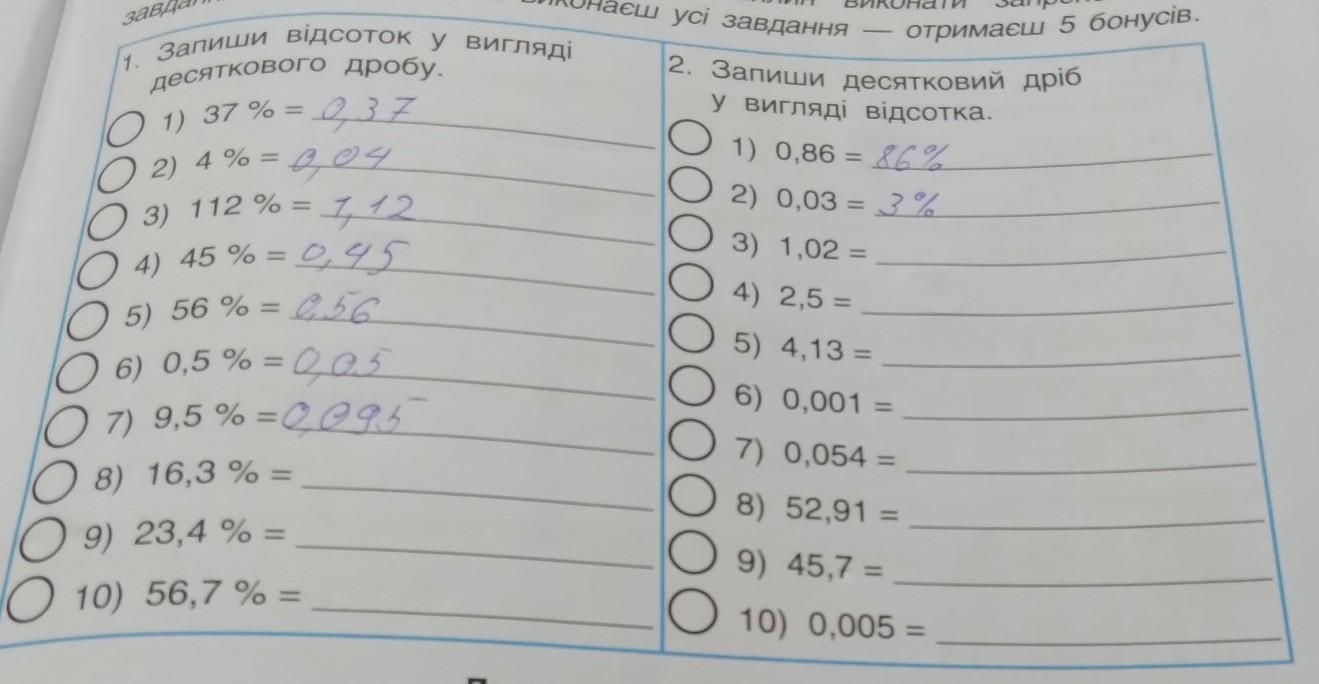 усі завдання — отримаєш 5 бонусів.
1. Запиши відсоток у вигляді
десяткового дробу.
1) 37 % = 0,37
2) 4 % = 0,04
3) 112 % = 1,12
4) 45 % = 0,45
5) 56 % = 0,56
6) 0,5 % = 0,05
7) 9,5 % = 0,095
8) 16,3 % =
9) 23,4 % =
10) 56,7 % =
2. Запиши десятковий дріб
у вигляді відсотка.
1) 0,86 = 86%
2) 0,03 = 3%
3) 1,02 =
4) 2,5 =
5) 4,13 =
6) 0,001 =
7) 0,054 =
8) 52,91 =
9) 45,7 =
10) 0,005 =